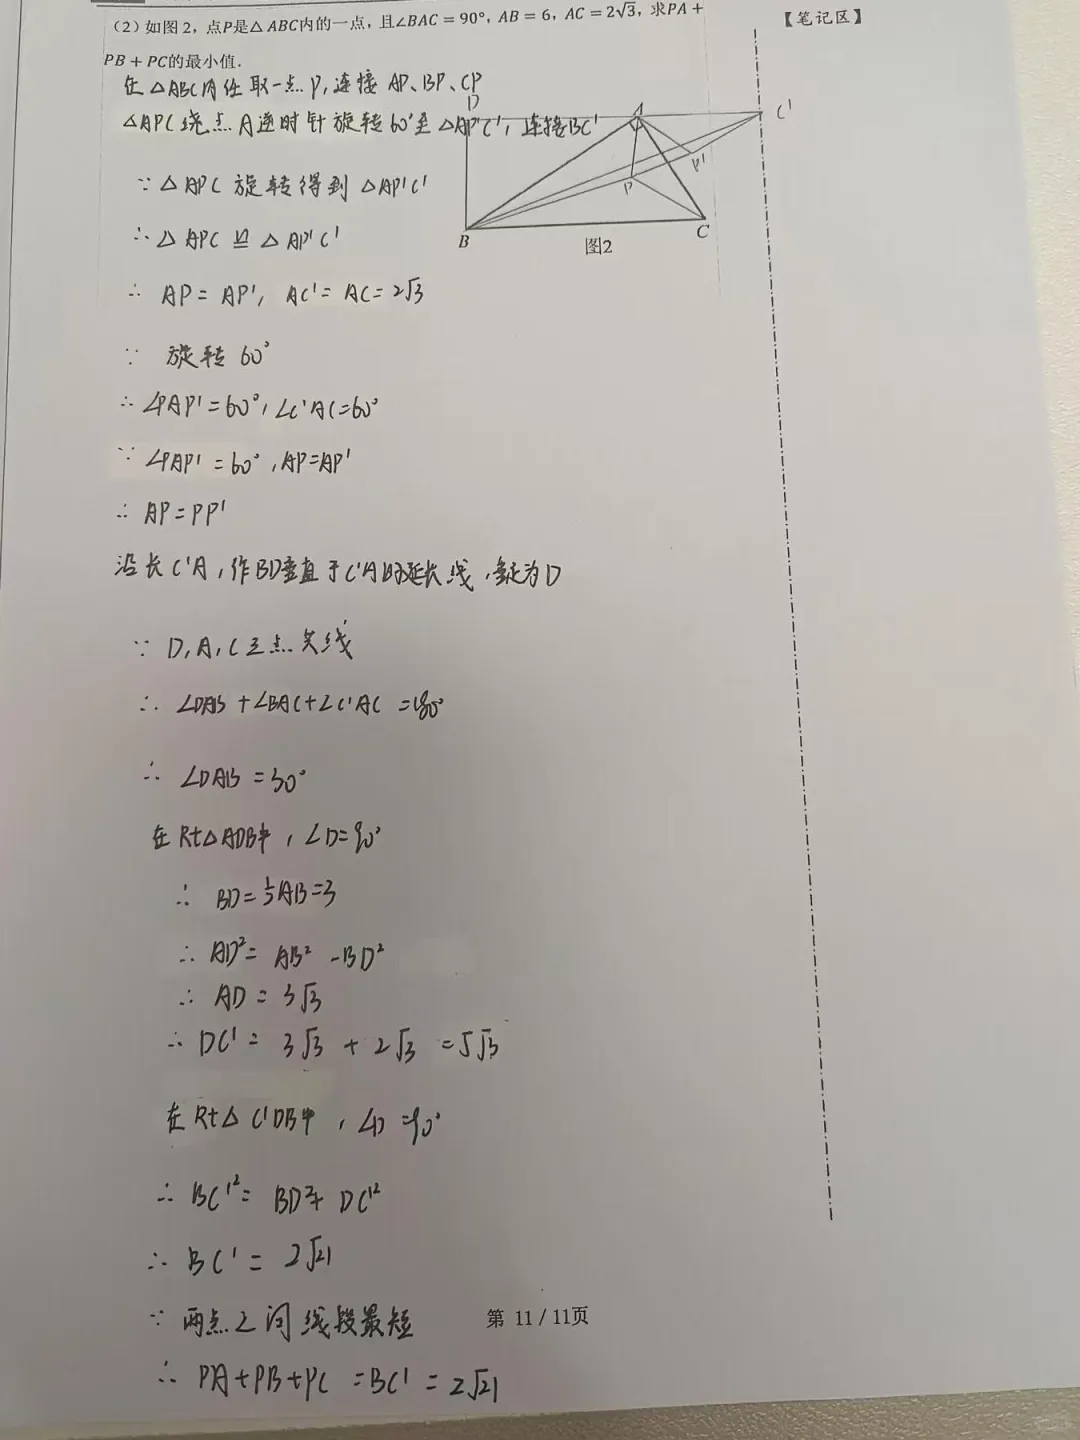 （2）如图2，点P是△ABC内的一点，且∠BAC = 90°，AB = 6，AC = 2√3，求PA +
PB + PC的最小值.
【笔记区】
在△ABC内任取一点P,连接 AP、BP、CP
△APC绕点A逆时针旋转60°至△AP'C',连接BC'
D
A
C'
P'
P
B
C
图2
∵ △APC 旋转得到 △AP'C'
∴ △ APC ≌ △ AP'C'
∴ AP = AP', AC' = AC = 2√3
∵ 旋转 60°
∴ ∠PAP' = 60°, ∠C'AC = 60°
∵ ∠PAP' = 60°, AP=AP'
∴ AP = PP'
沿长C'A,作BD垂直于C'A的延长线,垂足为D
∵ D,A,C三点共线
∴ ∠DAB +∠BAC+∠C'AC = 180°
∴ ∠DAB = 30°
在Rt△ADB中, ∠D=90°
∴ BD=½AB=3
∴ AD²= AB² -BD²
∴ AD = 3√3
∴ DC' = 3√3 + 2√3 =5√3
在Rt△ C'DB中, ∠D =90°
∴ BC'²= BD²+ DC'²
∴ BC' = 2√21
∵ 两点之间线段最短
第 11 / 11页
∴ PA+PB+PC =BC' = 2√21